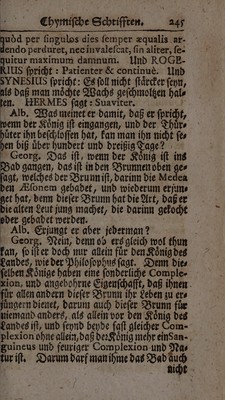 Chymische Schrifften. 245
quòd per singulos dies semper æqualis ar-
dendo perduret, nec invalescat, sin aliter, se-
quitur maximum damnum. Und ROGE-
RIUS spricht: Patienter & continuè. Und
SYNESIUS spricht: Es soll nicht stärcker seyn,
als daß man möchte Wachs geschmoltzen hal-
ten. HERMES sagt: Suaviter.
Alb. Was meinet er damit, daß er spricht,
wenn der König ist eingangen, und der Thür-
hüter ihn beschlossen hat, kan man ihn nicht se-
hen biß über hundert und dreißig Tage?
Georg. Das ist, wenn der König ist ins
Bad gangen, das ist in den Brunnen oben ge-
sagt, welches der Brunn ist, darinn die Medea
den Æsonem gebadet, und wiederum erjun-
get hat, denn dieser Brunn hat die Art, daß er
die alten Leut jung machet, die darinn gekocht
oder gebadet werden.
Alb. Erjungt er aber jederman?
Georg. Nein, denn ob ers gleich wol thun
kan, so ist er doch nur allein für den König des
Landes, wie der Philosophus sagt. Denn die-
selben Könige haben eine sonderliche Comple-
xion, und angebohrne Eigenschafft, daß ihnen
für allen andern dieser Brunn ihr Leben zu er-
jüngern dienet, darum auch dieser Brunn für
niemand anders, als allein vor den König des
Landes ist, und seynd beyde fast gleicher Com-
plexion ohne allein, daß der König mehr ein San-
guineus und feuriger Complexion und Na-
tur ist. Darum darf man ihme das Bad auch
nicht